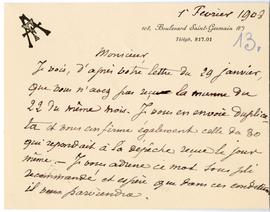 1er Février 1903
101, Boulevard Saint-Germain
Téléph. 827.01
13.
Monsieur
Je vois, d'après votre lettre du 29 janvier,
que vous n'avez pas reçu la mienne du
22 du même mois. Je vous en envoie duplica
ta et vous enferme également celle du 30
qui répondait à la dépêche reçue le jour
même. — Je vous adresse ce mot sous pli
recommandé et espère que dans ces conditions
il vous parviendra.